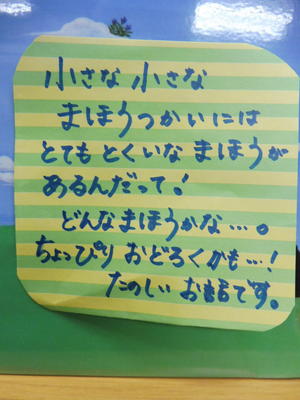 小さな小さな
まほうつかいには
とてもとくいなまほうが
あるんだって!
どんなまほうかな…。
ちょっぴりおどろくかも…!
たのしいおはなです。